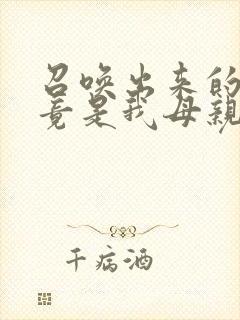 召唤出来的
竟是我母親
千病酒